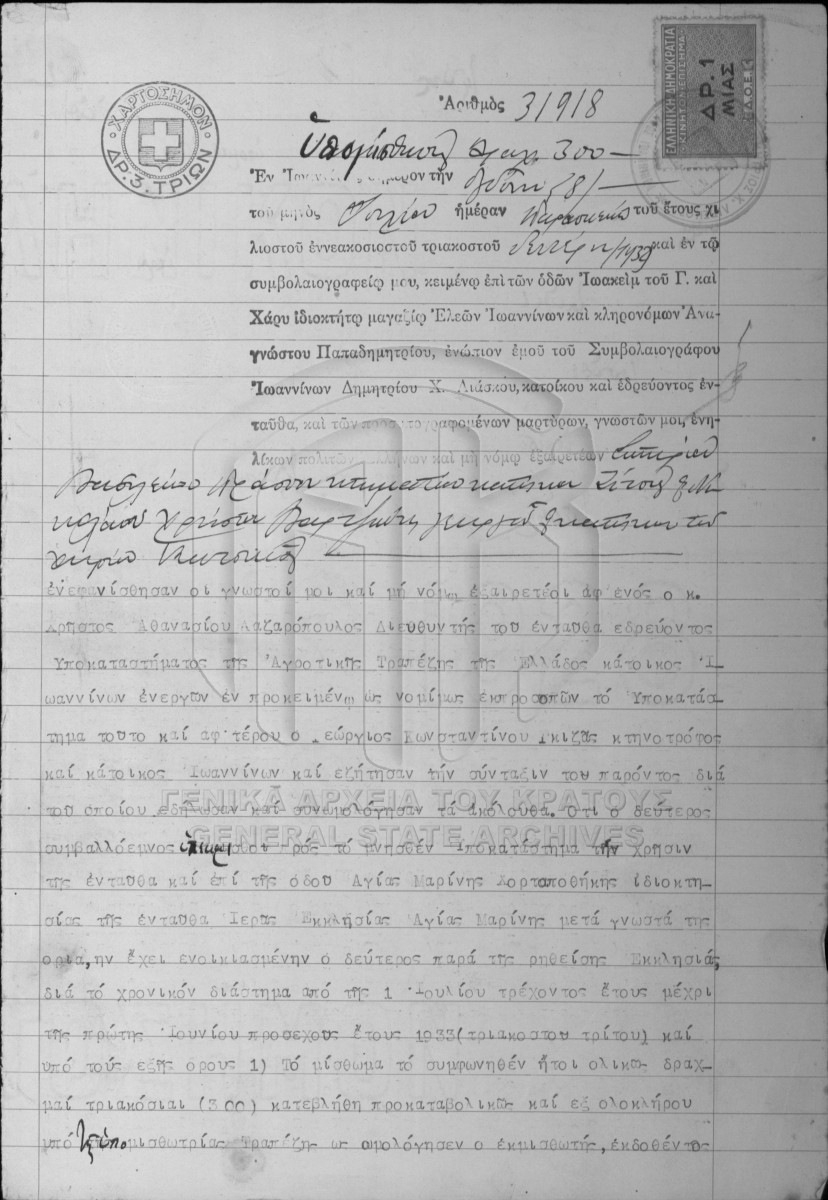 ΧΑΡΤΟΣΗΜΟΝ
ΔΡ. 3. ΤΡΙΩΝ
ΕΛΛΗΝΙΚΗ ΔΗΜΟΚΡΑΤΙΑ
ΚΙΝΗΤΟΝ ΕΠΙΣΗΜΑ
ΔΡ. 1
ΜΙΑΣ
Ἀριθμὸς 31918
δραχ 300 —
Ἐν σήμερον τὴν ὀγδόην (8) —
τοῦ μηνὸς Ἰουλίου ἡμέραν Παρασκευὴν τοῦ ἔτους χι
λιοστοῦ ἐννεακοσιοστοῦ τριακοστοῦ δευτέρου 1932 καὶ ἐν τῷ
συμβολαιογραφείῳ μου, κειμένῳ ἐπὶ τῶν ὁδῶν Ἰωακεὶμ τοῦ Γ. καὶ
Χάρυ ἰδιοκτήτῳ μαγαζίῳ Ἐλεῶν Ἰωαννίνων καὶ κληρονόμων Ἀνα-
γνώστου Παπαδημητρίου, ἐνώπιον ἐμοῦ τοῦ Συμβολαιογράφου
Ἰωαννίνων Δημητρίου Χ. Λιάσκου, κατοίκου καὶ ἑδρεύοντος ἐν-
ταῦθα, καὶ τῶν προσυπογραφομένων μαρτύρων, γνωστῶν μοι, ἐνη-
λίκων πολιτῶν Ἑλλήνων καὶ μὴ νόμῳ ἐξαιρετέων
ἐνεφανίσθησαν οι γνωστοί μοι καί μή νόμω ἐξαιρετέοι ἀφ'ενός ο κ.
Χρῆστος Ἀθανασίου Λαζαρόπουλος Διευθυντής τοῦ ένταῦθα εδρεύοντος
Υποκαταστήματος τῆς Ἀγροτικῆς Τραπέζης τῆς Ἑλλάδος κάτοικος Ἰ-
ωαννίνων ἐνεργῶν ἐν προκειμένω ὡς νομίμως ἐκπροσοπῶν τό Ὑποκατάσ-
τημα τοῦτο καί αφ'τέρου ο Γεώργιος Κωνσταντίνου Γκίζας κτηνοτρόφος
καί κάτοικος Ἰωαννίνων καί εζήτησαν τήν σύνταξιν του παρόντος διά
τοῦ οποίου εδήλωσαν καί συνωμολόγησαν τά ἀκόλουθα. Οτι ο δεύτερος
συμβαλλόεμνος πρός τό μνησθέν Υποκατάστημα τήν χρῆσιν
τῆς ἐνταῦθα καί ἐπί τῆς ὁδοῦ Αγίας Μαρίνης Χορταποθήκης ἰδιοκτη-
σίας τῆς ἐνταῦθα Ιερας Ἐκκλησίας Ἁγίας Μαρίνης μετά γνωστά της
ορια, ην ἔχει ενοικιασμένην ο δεύτερος παρά τῆς ρηθείσης Εκκλησιάς
διά τό χρονικόν διάστημα από τῆς 1 Ἰουλίου τρέχοντος ἔτους μέχρι
τῆς πρώτης Ἰουνίου προσεχοῦς ἔτους 1933(τριακοστοῦ τρίτου) καί
υπό τούς εξῆς όρους 1) Τό μίσθωμα τό συμφωνηθέν ἤτοι ολικῶς δραχ-
μαί τριακόσιαι (300) κατεβλήθη προκαταβολικῶς καί εξ ολοκλήρου
υπό μισθωτρίας Τραπέζης ως ωμολόγησεν ο ἐκμισθωτής, ἐκδοθέντος
ΓΕΝΙΚΑ ΑΡΧΕΙΑ ΤΟΥ ΚΡΑΤΟΥΣ
GENERAL STATE ARCHIVES